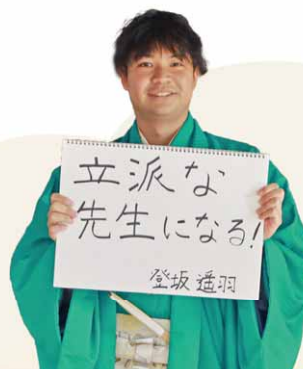 立派な
先生になる!
登坂 遥羽